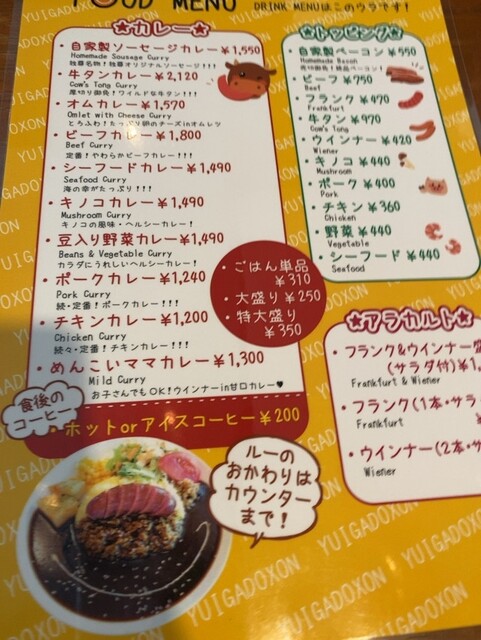 FOOD MENU
DRINK MENUはこのウラです!
★カレー★
・自家製ソーセージカレー¥1,550
Homemade Sausage Curry
・牛タンカレー¥2,120
Cow's Tong Curry
厚切り御免!ワイルド牛タン!!!
・オムカレー¥1,570
Omlet with Cheese Curry
とろふわ!たっぷり卵のチーズinオムレツ
・ビーフカレー¥1,800
Beef Curry
定番!やわらかビーフカレー!!!
・シーフードカレー¥1,490
Seafood Curry
海の幸がたっぷり!!!
・キノコカレー¥1,490
Mushroom Curry
キノコの風味・ヘルシーカレー!
・豆入り野菜カレー¥1,490
Beans & Vegetable Curry
カラダにうれしいヘルシーカレー!
・ポークカレー¥1,240
Pork Curry
続・定番!ポークカレー!!!
・チキンカレー¥1,200
Chicken Curry
続々・定番!チキンカレー!!!
・めんこいママカレー¥1,300
Mild Curry
お子さんでもOK!ウインナーin甘口カレー♥
・ごはん単品
¥310
・大盛り¥250
・特大盛り
¥350
食後の
コーヒー
・ホットorアイスコーヒー¥200
ルーの
おかわりは
カウンター
まで!
★トッピング★
・自家製ベーコン¥550
Homemade Bacon
・ビーフ¥750
Beef
・フランク¥470
Frankfurt
・牛タン¥970
Cow's Tong
・ウインナー¥420
Wiener
・キノコ¥440
Mushroom
・ポーク¥400
Pork
・チキン¥360
Chicken
・野菜¥440
Vegetable
・シーフード¥440
Seafood
★アラカルト★
・フランク&ウインナー盛
(サラダ付)¥1,
Frankfurt & Wiener
・フランク(1本・サラ
Frankfurt
・ウインナー(2本・サ
Wiener
YUIGADOXON